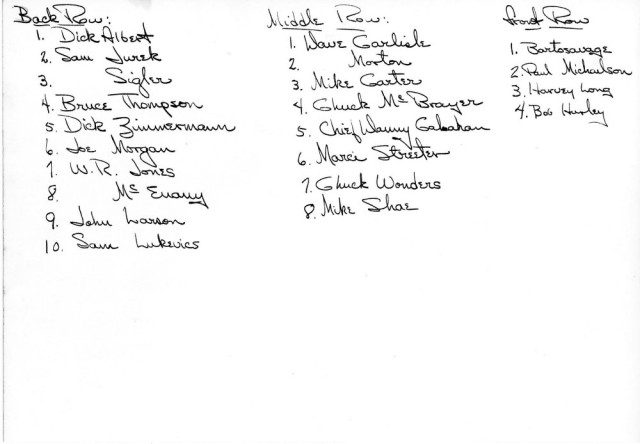 Back Row:
1. Dick Albert
2. Sam Jurek
3. Sigler
4. Bruce Thompson
5. Dick Zimmermann
6. Joe Morgan
7. W.R. Jones
8. Mc Enany
9. John Larson
10. Sam Lukevics
Middle Row:
1. Dave Carlisle
2. Morton
3. Mike Carter
4. Chuck Mc Brayer
5. Chief Danny Calahan
6. Marci Streeter
7. Chuck Wonders
8. Mike Shae
Front Row
1. Bartosavage
2. Paul Michaelson
3. Harvey Long
4. Bob Hurley